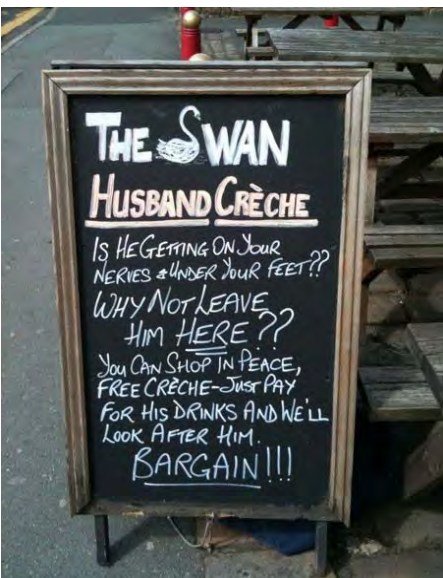 THE SWAN
HUSBAND CRÈCHE
IS HE GETTING ON YOUR
NERVES & UNDER YOUR FEET??
WHY NOT LEAVE
HIM HERE??
YOU CAN SHOP IN PEACE,
FREE CRÈCHE-JUST PAY
FOR HIS DRINKS AND WE'LL
LOOK AFTER HIM.
BARGAIN!!!